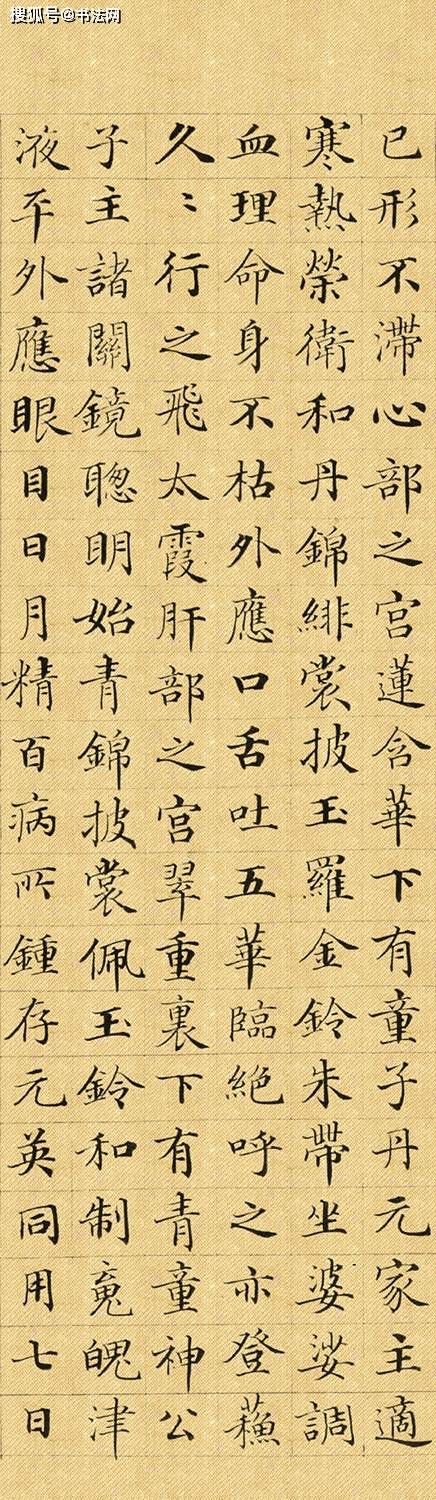 搜狐号@书法网
已形不滯心部之宮蓮含華下有童子丹元家主適
寒熱榮衛和丹錦緋裳披玉羅金鈴朱帶坐婆娑調
血理命身不枯外應口舌吐五華臨絕呼之亦登蘓
久〻行之飛太霞肝部之宮翠重裏下有青童神公
子主諸關鏡聦明始青錦披裳佩玉鈴和制䰟魄津
液平外應眼目日月精百病所鍾存元英同用七日